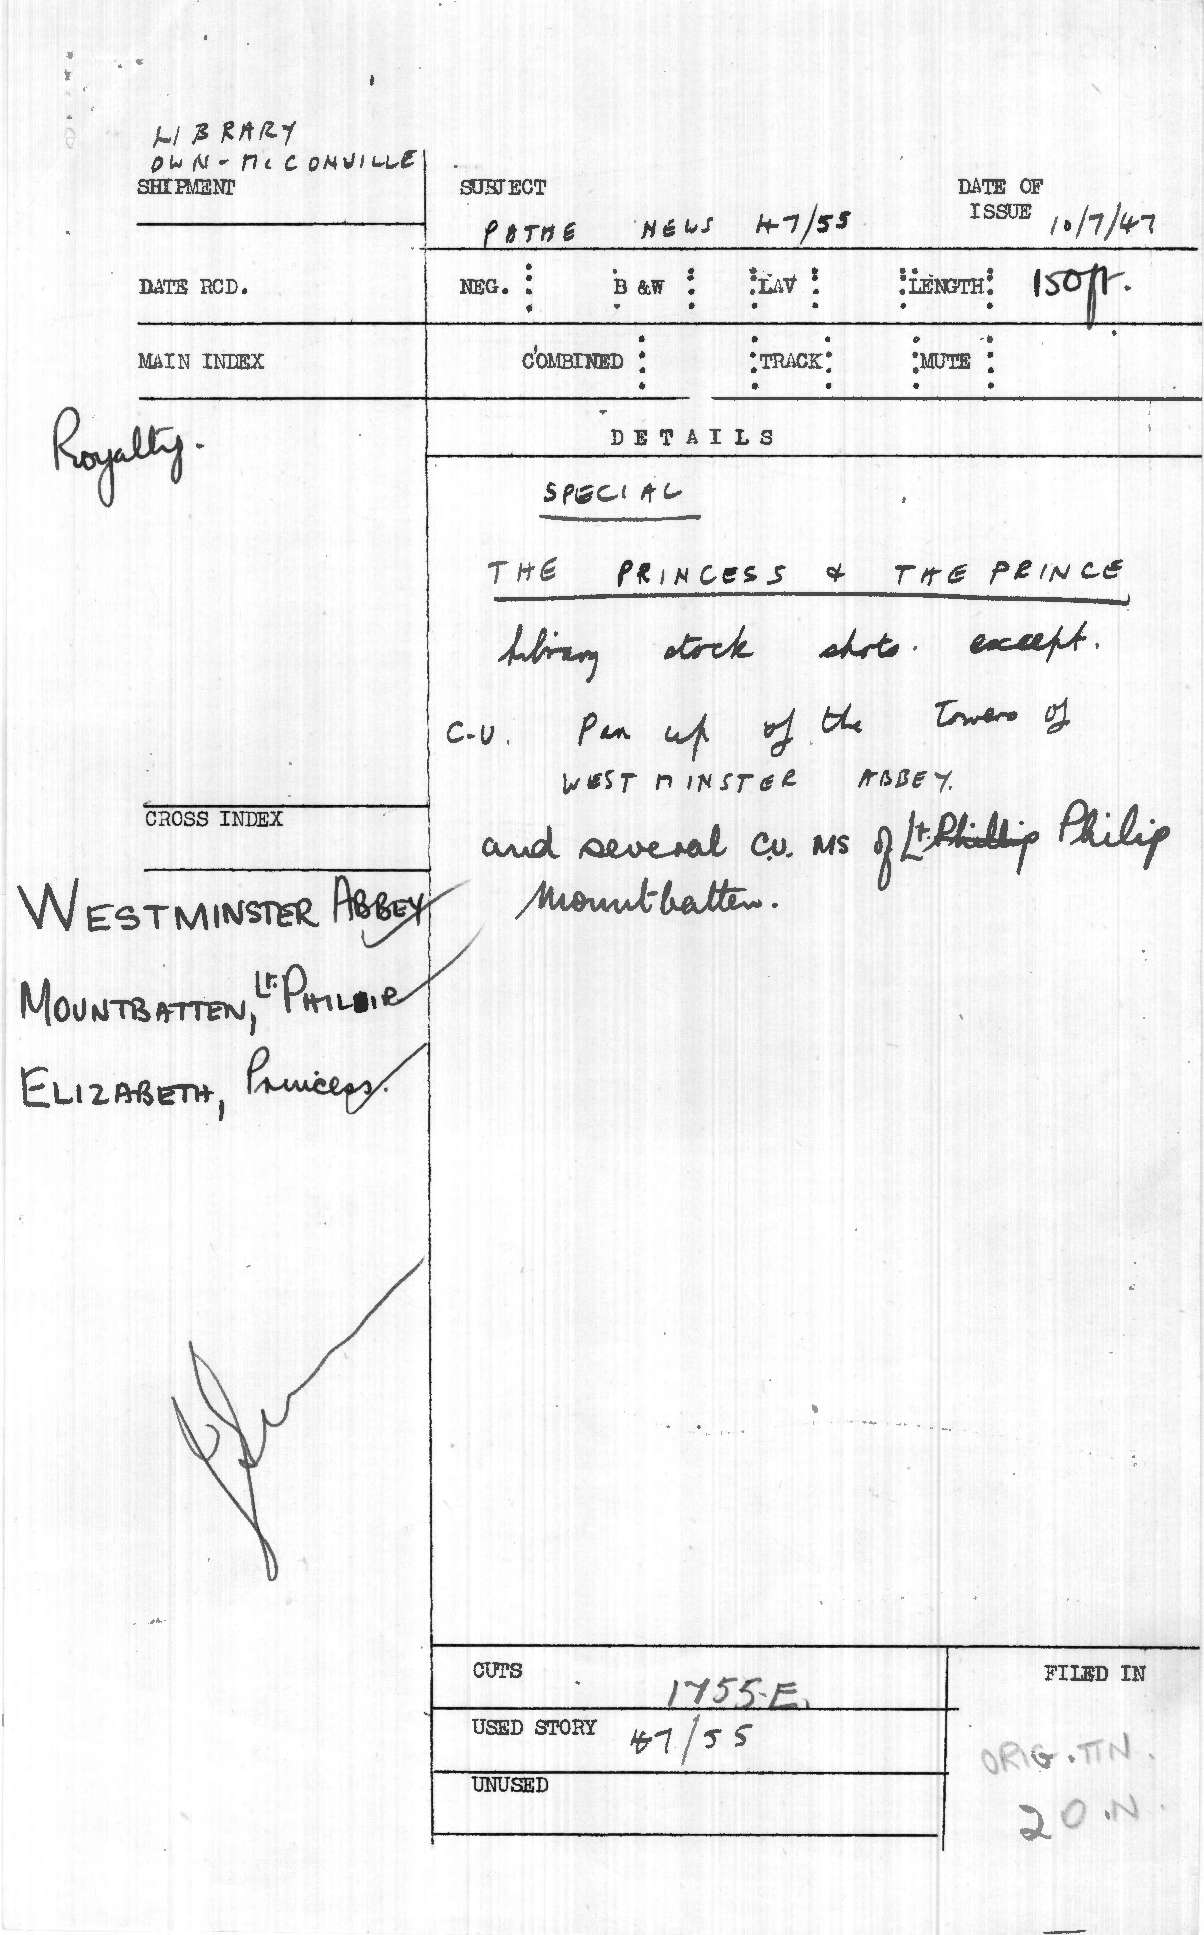 LIBRARY
OWN - McCONVILLE
SHIPMENT
SUBJECT
PATHE NEWS 47/55
DATE OF
ISSUE 10/7/47
DATE RCD.
NEG. B &W LAV LENGTH 150ft.
MAIN INDEX
COMBINED TRACK MUTE
Royalty.
DETAILS
SPECIAL
THE PRINCESS & THE PRINCE
Library stock shots. except.
C-U. Pan up of the Towers of
WESTMINSTER ABBEY.
and several C.U. MS of Lt. Phillip Philip
Mountbatten.
CROSS INDEX
WESTMINSTER ABBEY
MOUNTBATTEN, Lt. PHILIP
ELIZABETH, Princess.
CUTS 1755-E.
USED STORY 47/55
UNUSED
FILED IN
ORIG. TIN.
20.N.